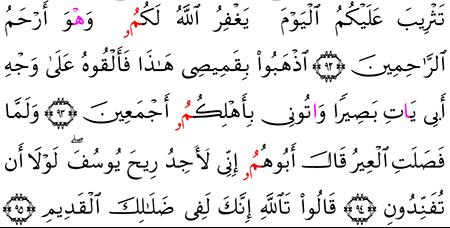 تَثْرِيبَ عَلَيْكُمُ اَلْيَوْمَ يَغْفِرُ اُللَّهُ لَكُمُۥ وَهْوَ أَرْحَمُ
اُلرَّٰحِمِينَ ۝٩٢ اَذْهَبُواْ بِقَمِيصِى هَٰذَا فَأَلْقُوهُ عَلَىٰ وَجْهِ
أَبِى يَاتِ بَصِيرًا وَاتُونِى بِأَهْلِكُمُۥ أَجْمَعِينَ ۝٩٣ وَلَمَّا
فَصَلَتِ اِلْعِيرُ قَالَ أَبُوهُمُۥ إِنِّى لَأَجِدُ رِيحَ يُوسُفَ ۖ لَوْلَا أَن
تُفَنِّدُونِ ۝٩٤ قَالُواْ تَاَللَّهِ إِنَّكَ لَفِى ضَلَٰلِكَ اَلْقَدِيمِ ۝٩٥